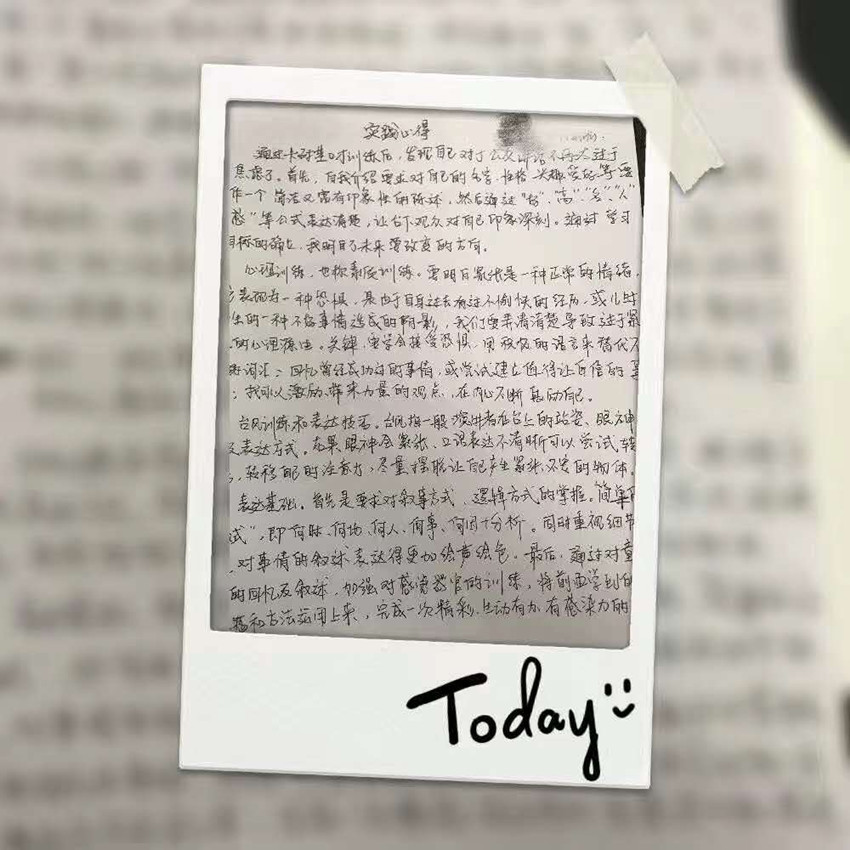 实践心得
通过卡耐基口才训练后，发现自己对于公众讲话不再太过于
焦虑了。首先，自我介绍要求对自己的名字、性格、兴趣爱好等
作一个简洁又富有印象性的陈述，然后通过
等公式表达清楚，让台下观众对自己印象深刻。通过学习
目标的确立，我明白了未来要改变的方向。
心理训练，也称素质训练。要明白紧张是一种正常的情绪，
表现为一种恐惧，是由于自身过去有过不愉快的经历，或儿时
的一种不好事情造成的阴影，我们要弄清清楚导致过于紧
的心理源由。关键，要学会接受恐惧，用积极的语言来替代不
词汇；回忆曾经成功的事情，或尝试建立值得让自信的
；找可以激励、带来力量的观点，在内心不断鼓励自己。
台风训练和表达技巧。台风指一般演讲者在台上的站姿、眼神
及表达方式。如果眼神会紧张、口语表达不清晰可以尝试转
，转移眼睛注意力，尽量摆脱让自己产生紧张不安的物体。
表达基础。首先是要求对叙事方式、逻辑方式的掌握。简单
式”，即何时、何地、何人、何事、何因十分析。同时重视细节
，对事情的叙述表达得更加绘声绘色。最后，通过对童
的回忆及叙述，加强对感官器官的训练，将前面学到的
和方法运用上来，完成一次精彩、生动有力、有感染力的
Today